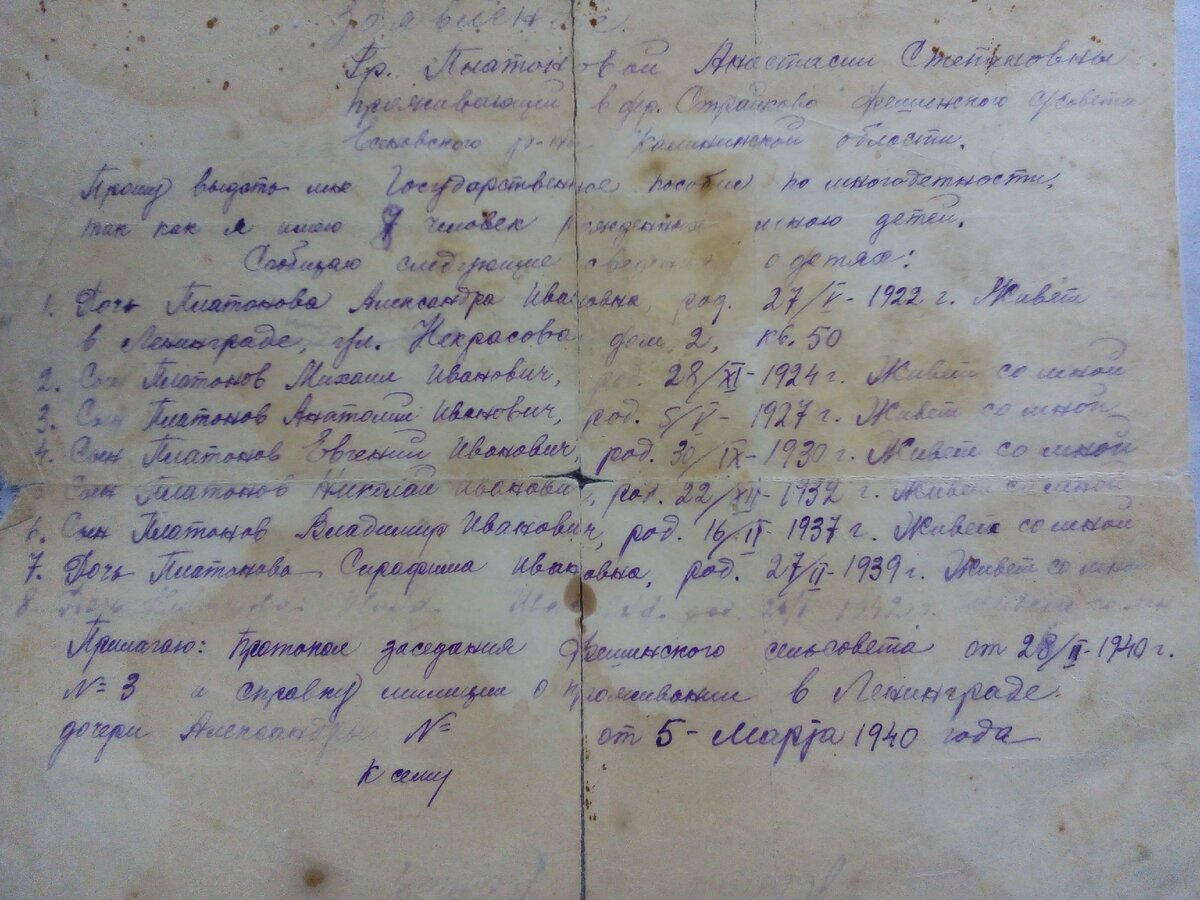 Заявление.
Гр. Платоновой Анастасии Степановны
проживающей в др. Страшково Фешинского с/совета
Есеновского р-на Калининской области.
Прошу выдать мне Государственное пособие по многодетности,
так как я имею человек рожденных мною детей.
Сообщаю следующие сведения о детях:
1. Дочь Платонова Александра Ивановна, род. 27/V - 1922 г. Живёт
в Ленинграде, ул. Некрасова дом 2, кв. 50
2. Сын Платонов Михаил Иванович, род. 28/XI - 1924 г. Живёт со мной
3. Сын Платонов Анатолий Иванович, род. 5/V - 1927 г. Живёт со мной
4. Сын Платонов Евгений Иванович, род. 30/IX - 1930 г. Живёт со мной
Сын Платонов Николай Иванович, род. 22/XII - 1932 г. Живёт со мной
6. Сын Платонов Владимир Иванович, род. 16/II - 1937 г. Живёт со мной
7. Дочь Платонова Сирафима Ивановна, род. 27/II - 1939 г. Живёт со мной
8. Дочь Платонова род.
Прилагаю: Протокол заседания Фешинского сельсовета от 28/II - 1940 г.
№ 3 и справку милиции о проживании в Ленинграде
дочери Александры № от 5 - Марта 1940 года
К сему